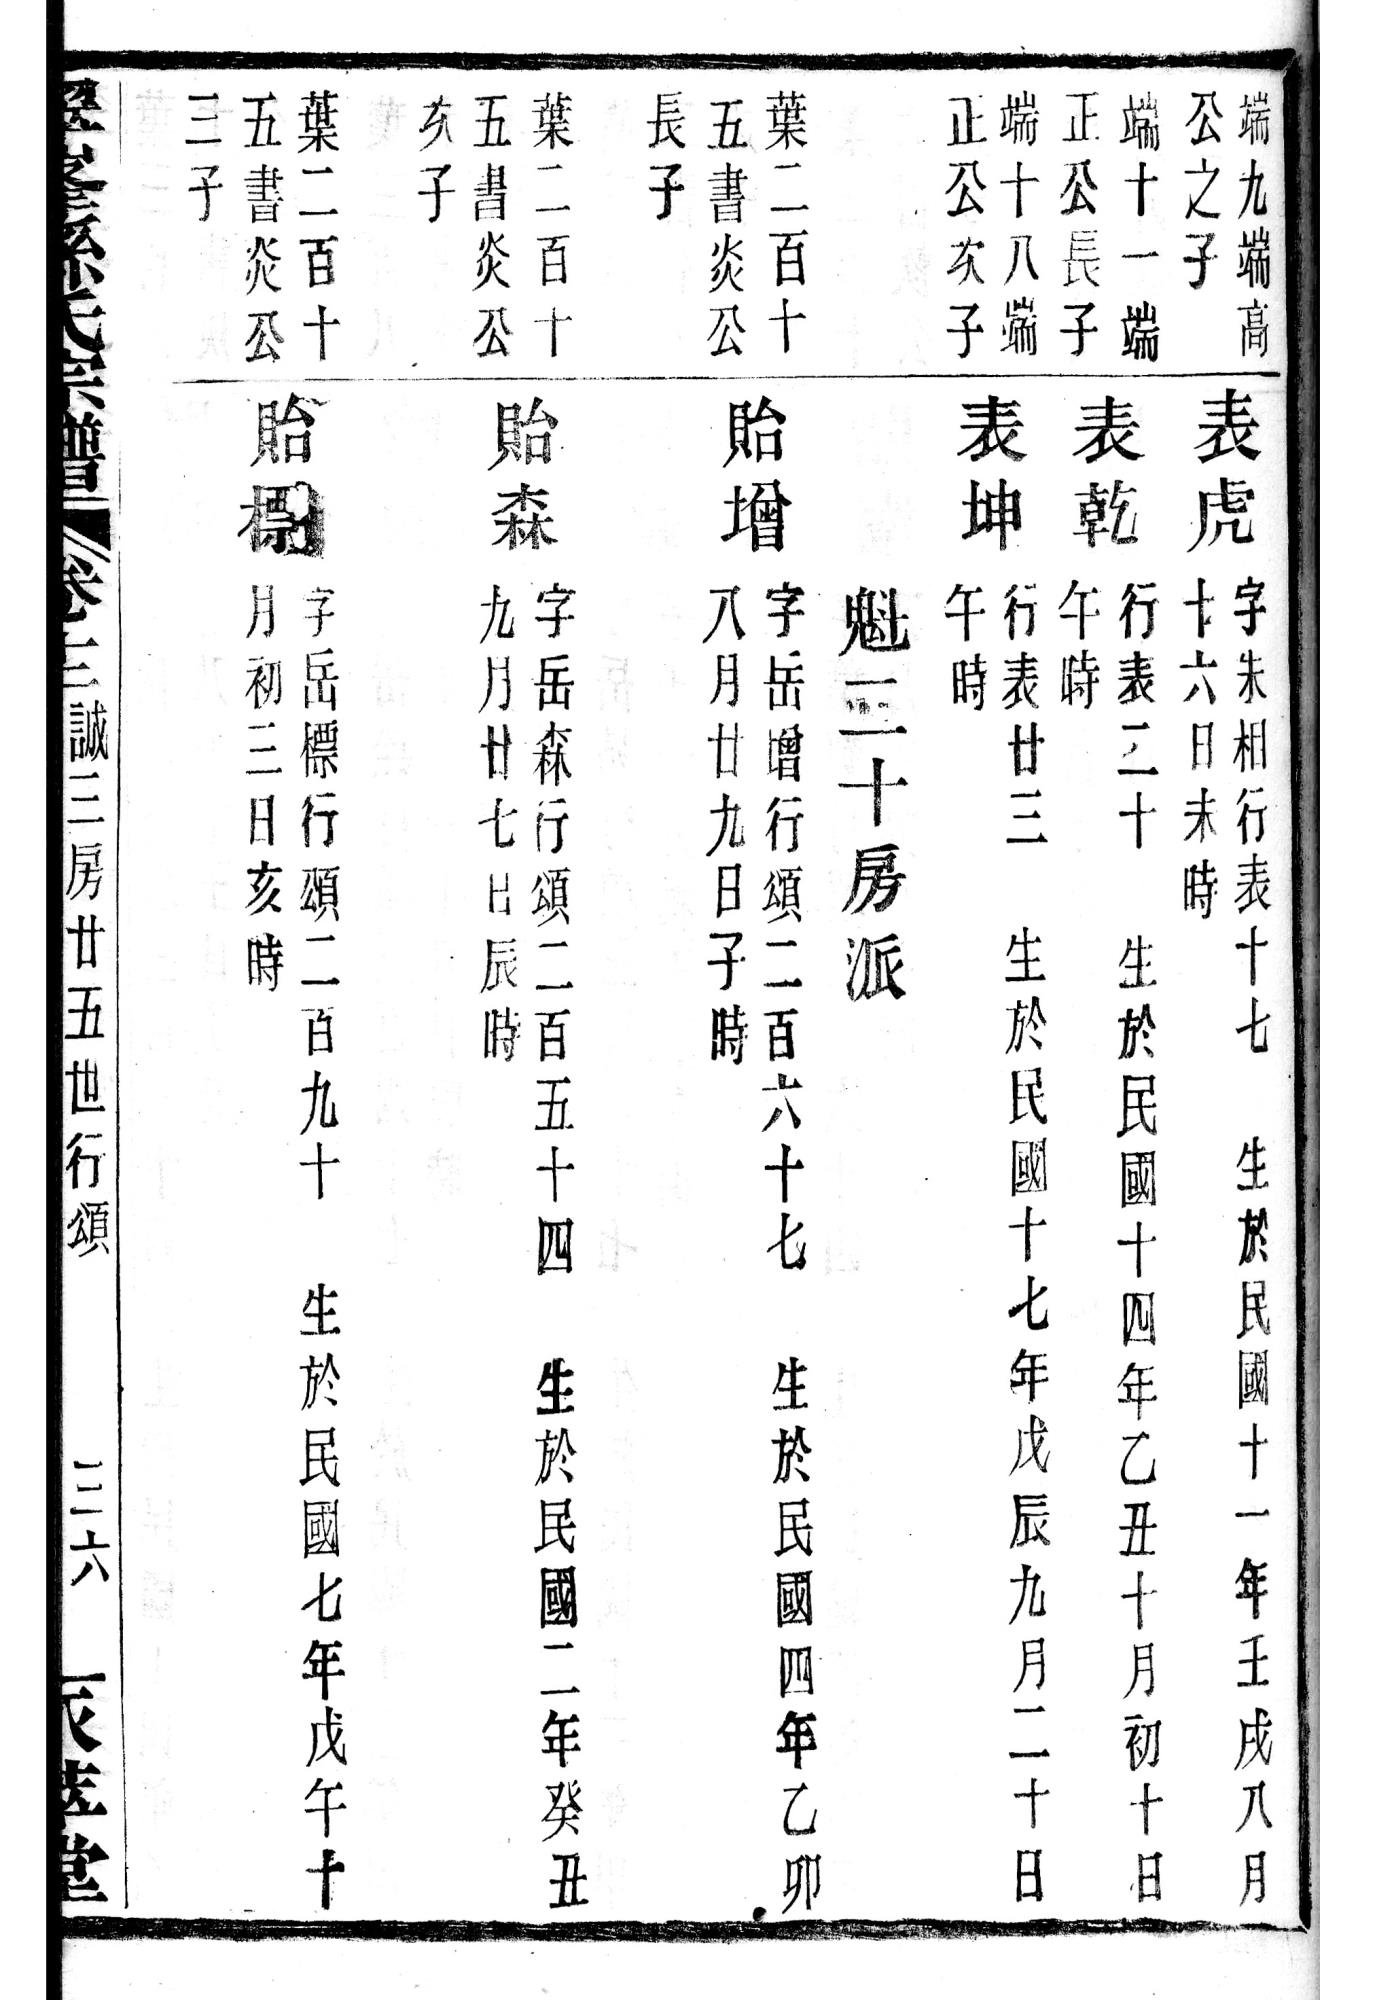 端九端高
公之子
表虎
字朱相行表十七　生於民國十一年壬戌八月
十六日未時
端十一端
正公長子
表乾
行表二十　生於民國十四年乙丑十月初十日
午時
端十八端
正公次子
表坤
行表廿三　生於民國十七年戊辰九月二十日
午時
魁三十房派
葉二百十
五書炎公
長子
貽增
字岳增行頌二百六十七　生於民國四年乙卯
八月廿九日子時
葉二百十
五書炎公
次子
貽森
字岳森行頌二百五十四　生於民國二年癸丑
九月廿七日辰時
葉二百十
五書炎公
三子
貽標
字岳標行頌二百九十　生於民國七年戊午十
月初三日亥時
孫氏宗譜
卷三 誠三房廿五世行頌
三六
堂